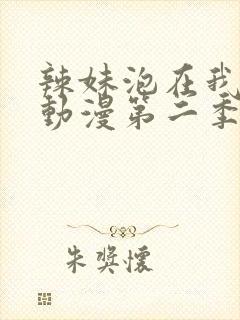 辣妹泡在我
動漫第二季
朱奖懷